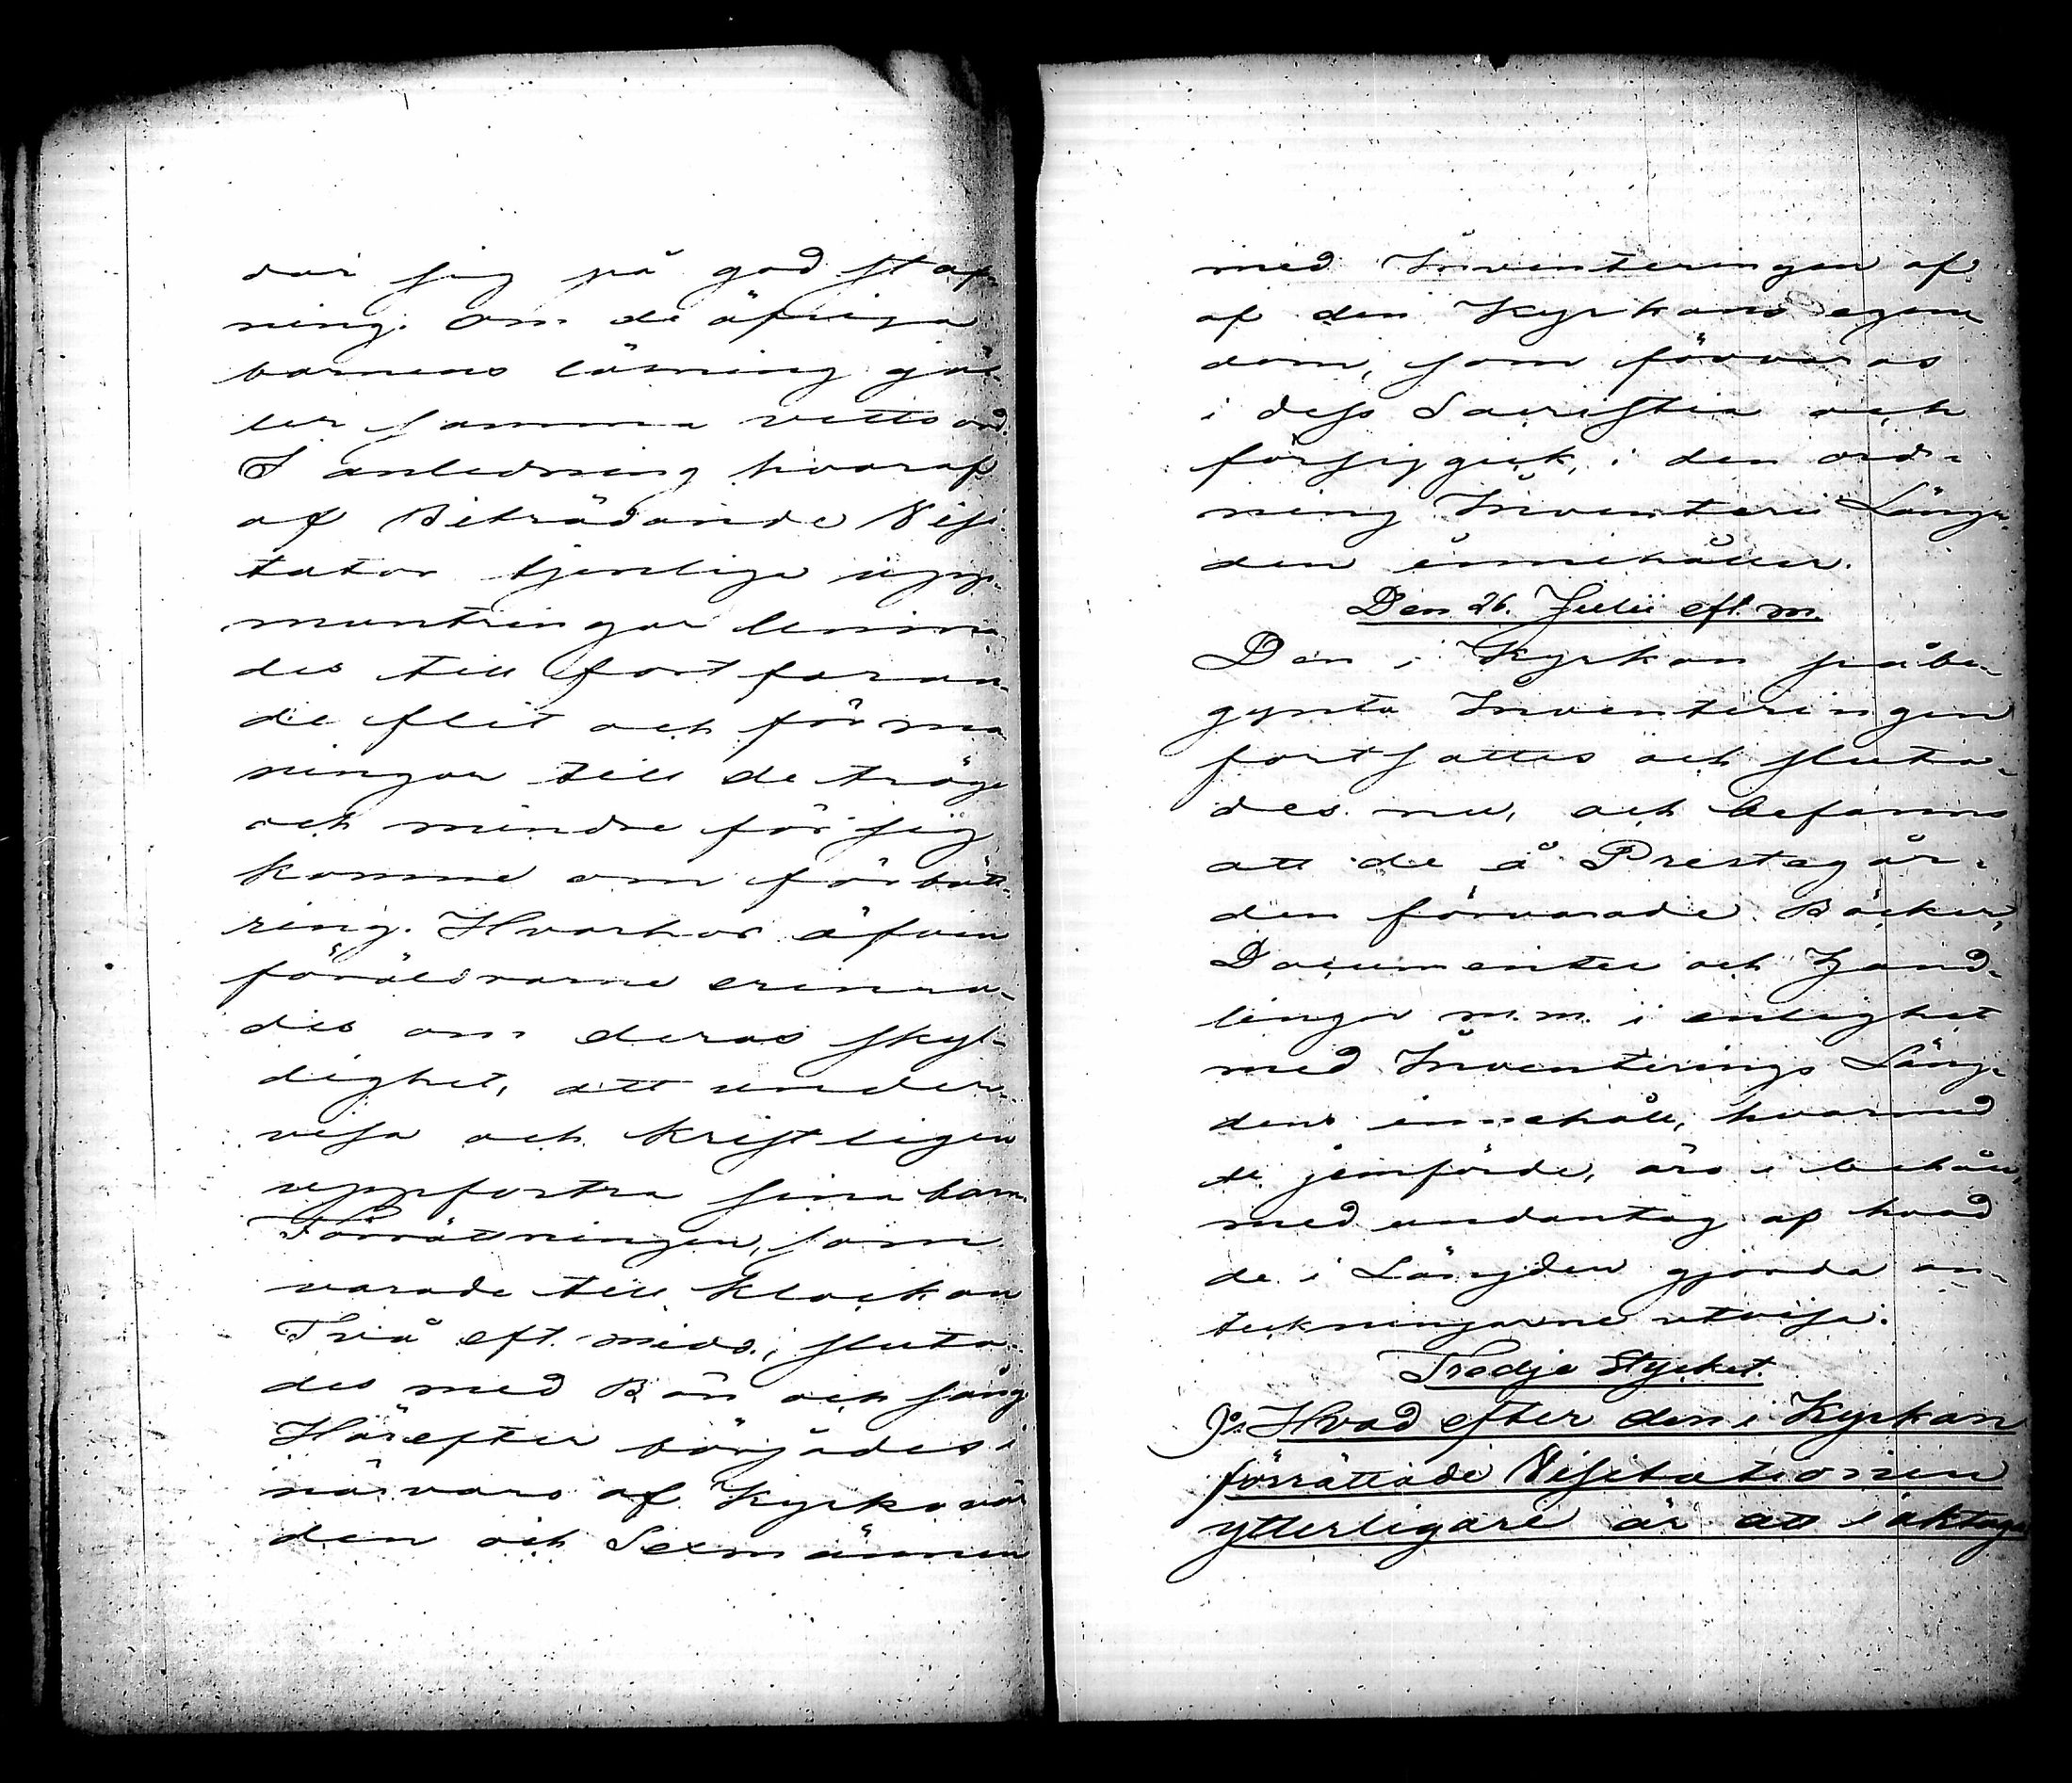 dar sig på god staf-
ning. Om de öfriga
barnens läsning gäl-
ler samma vettsord.
I anledning hvaraf
af Biträdande Visi-
tator tjenliga upp-
muntringar lemna-
des till fortfaran-
de flit och förma-
ningar till de tröge
och mindre försig
komne om förbätt-
ring. Hvarhos äfven
föräldrarne erinra-
des om deras skyl-
dighet, att under-
visa och kristligen
uppfostra sina barn.
Förrättningen, som
varade till klockan
Två eft. midd., sluta-
des med Bön och sång
Härefter börjades i
närvaro af Kyrkovär
den och Sexmännen
med Inventeringen af
af den Kyrkans egen-
dom, som förvaras
i dess Sacristia och
försiggick, i den ord-
ning Inventarii Läng-
den innehåller.
Den 26. Julii eft. m.
Den i Kyrkan påbe-
gynta Inventeringen
fortsattes och sluta-
des nu, och befanns
att de å Prestagår-
den förvarade Böcker,
Documenter och Hand-
lingar m.m. i enlighet
med Inventerings Läng-
dens innehåll, hvarmed
de jemförde, äro i behåll,
med undantag af hvad
de i Längden gjorda an-
teckningarne utvisa.
Tredje Stycket.
Hvad efter den i Kyrkan
förrättade Visitationen
ytterligare är att iakttaga